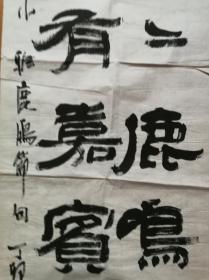 二鹿鳴
有嘉賓
小雅鹿鳴節句 丁卯